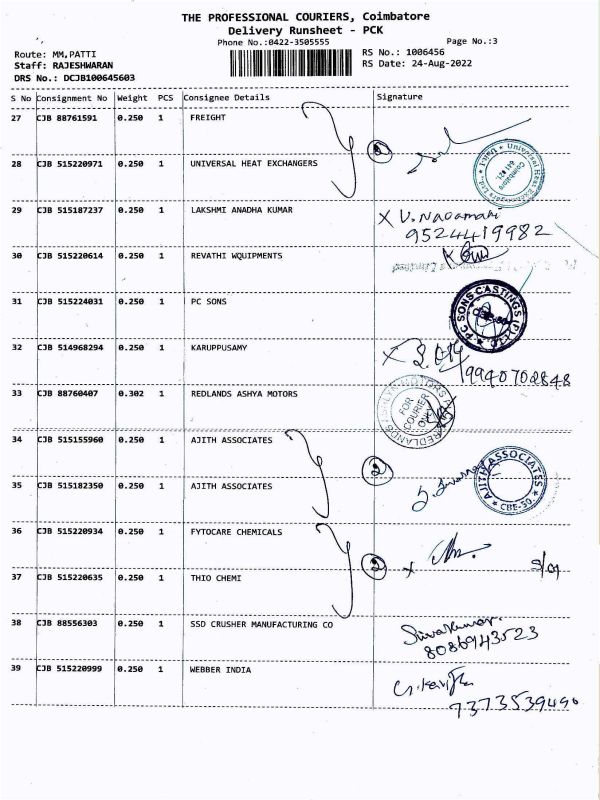 THE PROFESSIONAL COURIERS, Coimbatore
Delivery Runsheet - PCK
Phone No.:0422-3505555
Page No.:3
Route: MM,PATTI
Staff: RAJESHWARAN
DRS No.: DCJB100645603
RS No.: 1006456
RS Date: 24-Aug-2022
S No Consignment No Weight PCS Consignee Details Signature
27 CJB 88761591 0.250 1 FREIGHT
2
28 CJB 515220971 0.250 1 UNIVERSAL HEAT EXCHANGERS
Universal Heat Exchangers Ltd., Unit I
Coimbatore
641 021
29 CJB 515187237 0.250 1 LAKSHMI ANADHA KUMAR
X V. Nagamani
9524419982
30 CJB 515220614 0.250 1 REVATHI WQUIPMENTS
31 CJB 515224031 0.250 1 PC SONS
PC SONS CASTINGS (P) LTD
32 CJB 514968294 0.250 1 KARUPPUSAMY
X
9994070 2848
33 CJB 88760407 0.302 1 REDLANDS ASHYA MOTORS
REDLANDS MOTORS
FOR
COURIER
ONLY
34 CJB 515155960 0.250 1 AJITH ASSOCIATES
2
35 CJB 515182350 0.250 1 AJITH ASSOCIATES
AJITH ASSOCIATES
CBE-50.
36 CJB 515220934 0.250 1 FYTOCARE CHEMICALS
2 X
37 CJB 515220635 0.250 1 THIO CHEMI
38 CJB 88556303 0.250 1 SSD CRUSHER MANUFACTURING CO
Sivakumar.
8086943523
39 CJB 515220999 0.250 1 WEBBER INDIA
7373539490